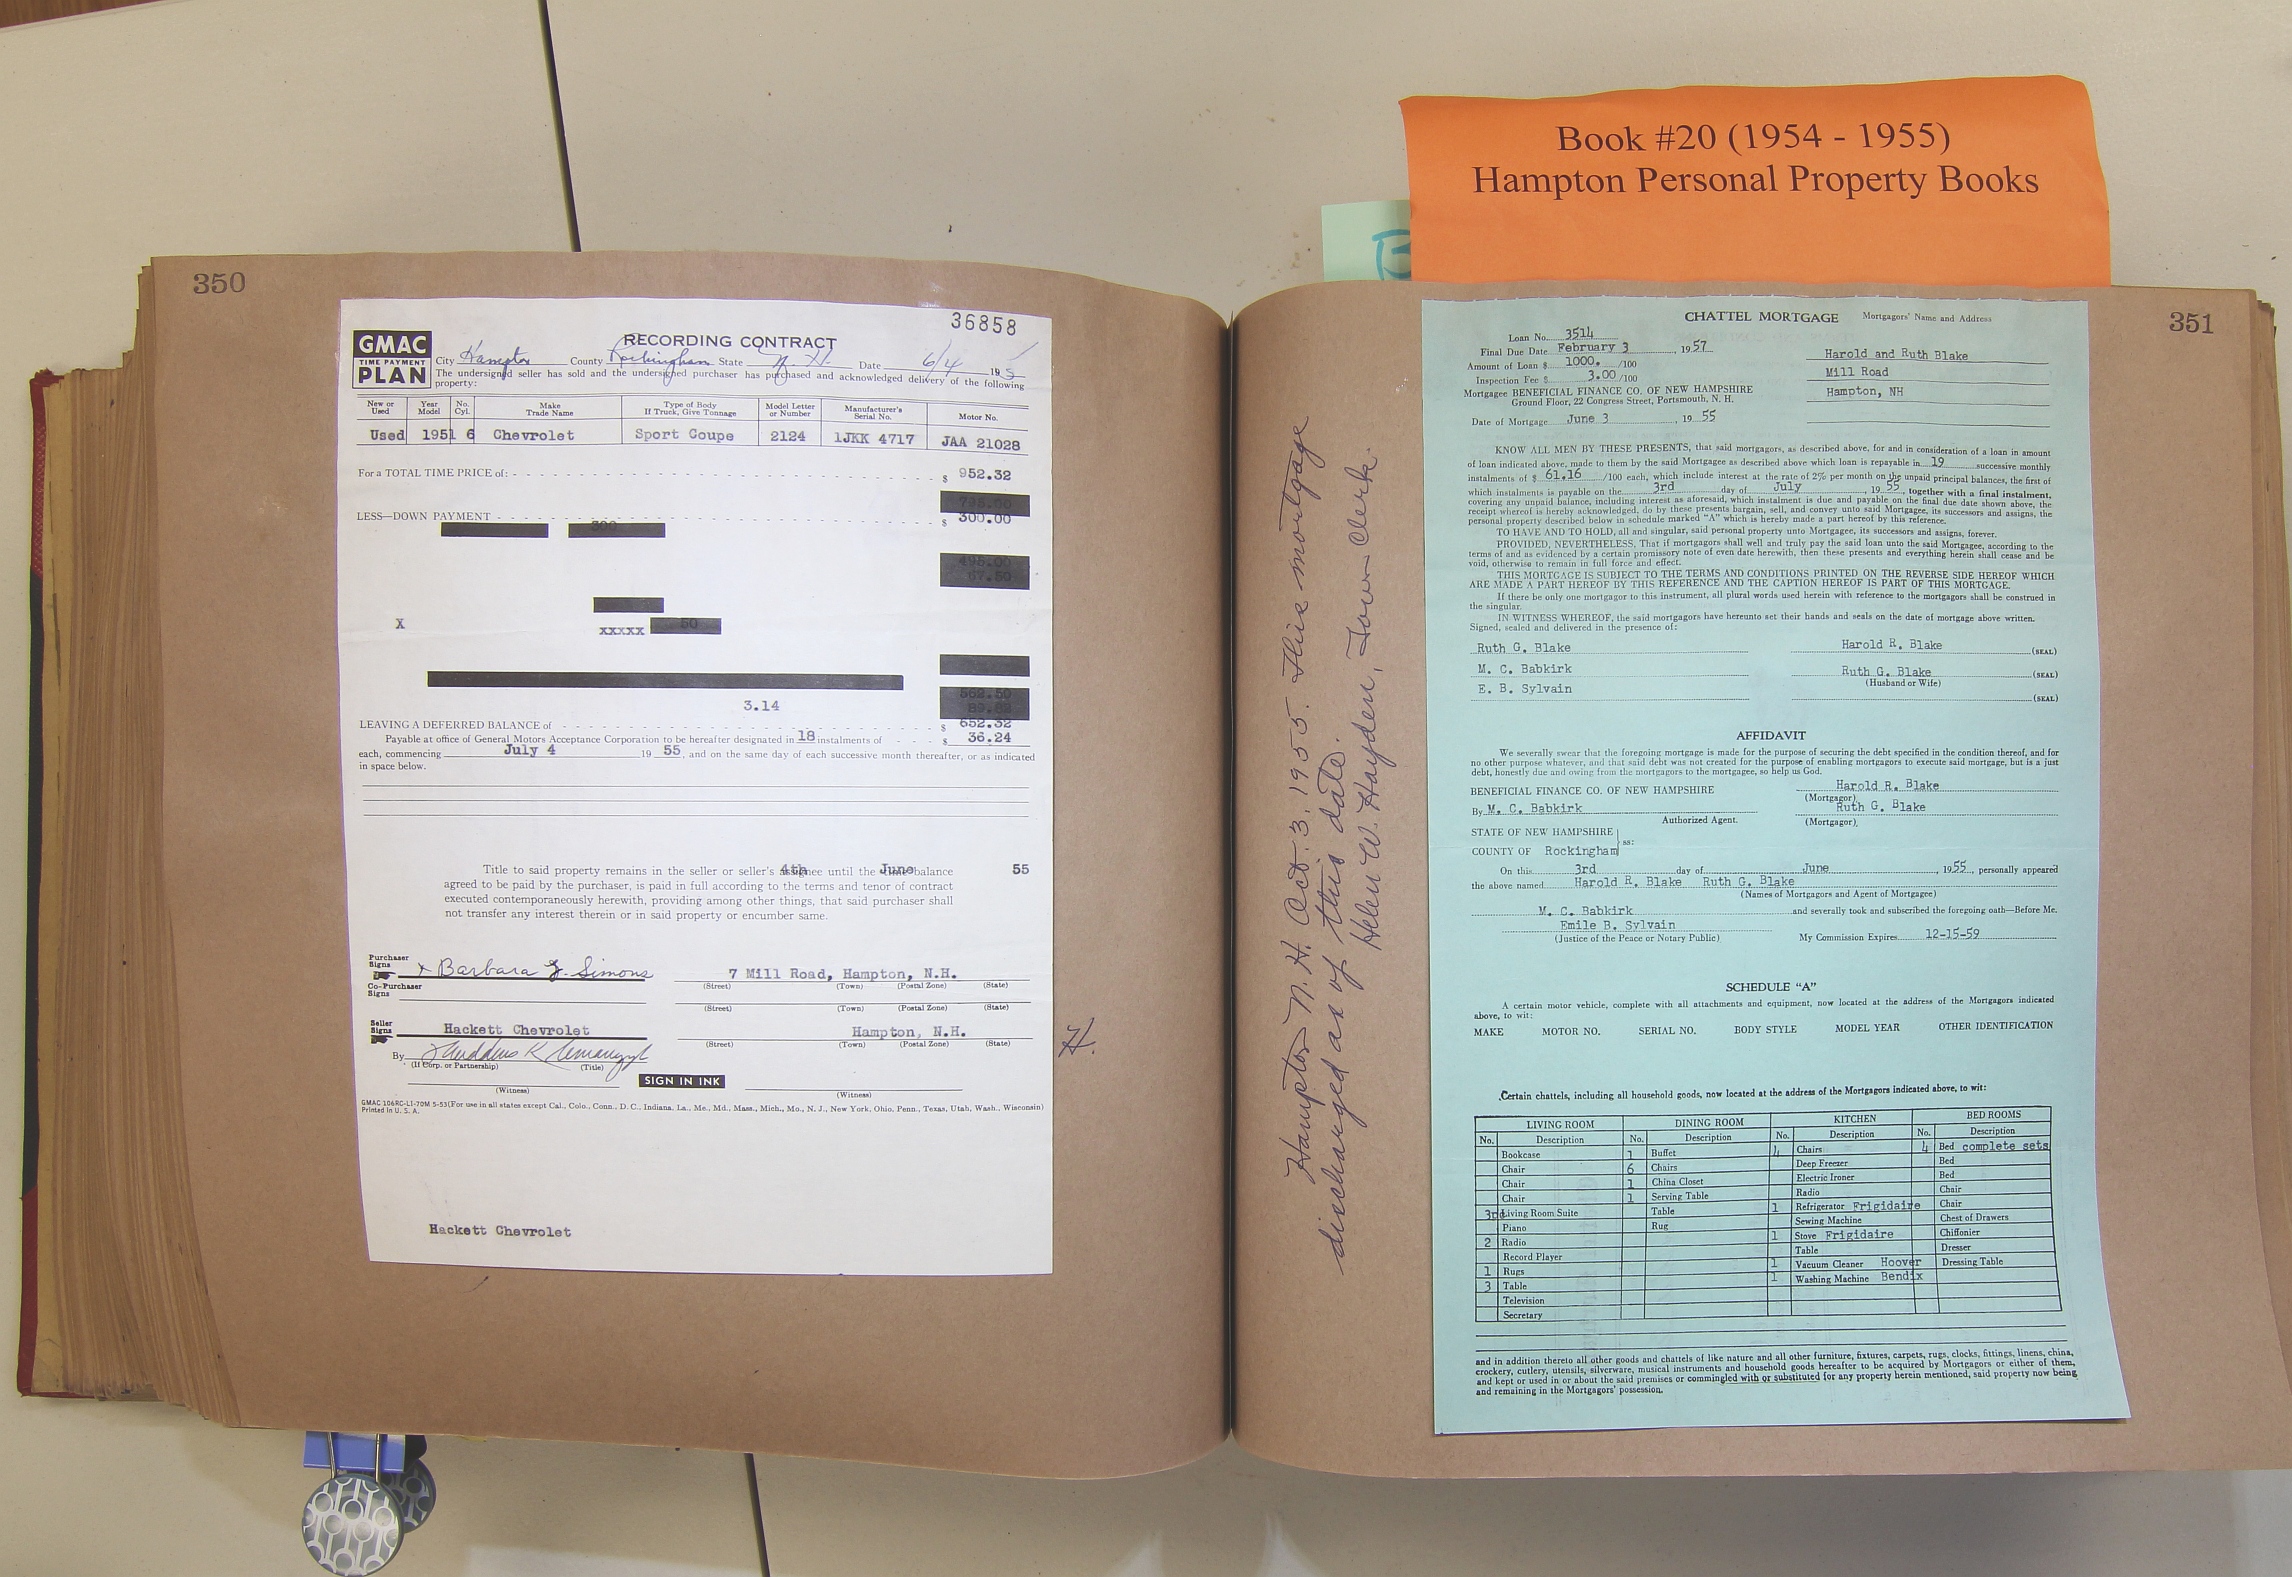 Book #20 (1954 - 1955)
Hampton Personal Property Books
350
36858
GMAC
TIME PAYMENT
PLAN
RECORDING CONTRACT
City Hampton County Rockingham State N. H. Date 6/4 195
The undersigned seller has sold and the undersigned purchaser has purchased and acknowledged delivery of the following
property:
New or Used Year Model No. Cyl. Make Trade Name Type of Body If Truck, Give Tonnage Model Letter or Number Manufacturer's Serial No. Motor No.
Used 1951 6 Chevrolet Sport Coupe 2124 1JKK 4717 JAA 21028
For a TOTAL TIME PRICE of: $ 952.32
735.00
LESS—DOWN PAYMENT $ 300.00
300
495.00
67.50
X XXXXX 50
562.50
89.82
3.14
LEAVING A DEFERRED BALANCE of $ 652.32
Payable at office of General Motors Acceptance Corporation to be hereafter designated in 18 instalments of $ 36.24
each, commencing July 4 19 55, and on the same day of each successive month thereafter, or as indicated
in space below.
Title to said property remains in the seller or seller's assignee until the time balance
4th June 55
agreed to be paid by the purchaser, is paid in full according to the terms and tenor of contract
executed contemporaneously herewith, providing among other things, that said purchaser shall
not transfer any interest therein or in said property or encumber same.
Purchaser Signs x Barbara J. Simons 7 Mill Road, Hampton, N.H.
(Street) (Town) (Postal Zone) (State)
Co-Purchaser Signs
(Street) (Town) (Postal Zone) (State)
Seller Signs Hackett Chevrolet Hampton, N.H.
(Street) (Town) (Postal Zone) (State)
By
(If Corp. or Partnership) (Title)
SIGN IN INK
(Witness) (Witness)
GMAC 106RC-L1-70M 5-53(For use in all states except Cal., Colo., Conn., D. C., Indiana, La., Me., Md., Mass., Mich., Mo., N. J., New York, Ohio, Penn., Texas, Utah, Wash., Wisconsin)
Printed in U. S. A.
Hackett Chevrolet
H.
Hampton N. H. Oct. 3, 1955. This mortgage
discharged as of this date.
Helen W. Hayden, Town Clerk.
351
CHATTEL MORTGAGE Mortgagors' Name and Address
Loan No. 3514
Final Due Date February 3, 1957
Amount of Loan $ 1000. /100
Inspection Fee $ 3.00 /100
Mortgagee BENEFICIAL FINANCE CO. OF NEW HAMPSHIRE
Ground Floor, 22 Congress Street, Portsmouth, N. H.
Date of Mortgage June 3, 19 55
Harold and Ruth Blake
Mill Road
Hampton, NH
KNOW ALL MEN BY THESE PRESENTS, that said mortgagors, as described above, for and in consideration of a loan in amount
of loan indicated above, made to them by the said Mortgagee as described above which loan is repayable in 19 successive monthly
instalments of $ 61.16 /100 each, which include interest at the rate of 2% per month on the unpaid principal balances, the first of
which instalments is payable on the 3rd day of July, 19 55, together with a final instalment,
covering any unpaid balance, including interest as aforesaid, which instalment is due and payable on the final due date shown above, the
receipt whereof is hereby acknowledged, do by these presents bargain, sell, and convey unto said Mortgagee, its successors and assigns, the
personal property described below in schedule marked "A" which is hereby made a part hereof by this reference.
TO HAVE AND TO HOLD, all and singular, said personal property unto Mortgagee, its successors and assigns, forever.
PROVIDED, NEVERTHELESS, That if mortgagors shall well and truly pay the said loan unto the said Mortgagee, according to the
terms of and as evidenced by a certain promissory note of even date herewith, then these presents and everything herein shall cease and be
void, otherwise to remain in full force and effect.
THIS MORTGAGE IS SUBJECT TO THE TERMS AND CONDITIONS PRINTED ON THE REVERSE SIDE HEREOF WHICH
ARE MADE A PART HEREOF BY THIS REFERENCE AND THE CAPTION HEREOF IS PART OF THIS MORTGAGE.
If there be only one mortgagor to this instrument, all plural words used herein with reference to the mortgagors shall be construed in
the singular.
IN WITNESS WHEREOF, the said mortgagors have hereunto set their hands and seals on the date of mortgage above written.
Signed, sealed and delivered in the presence of:
Ruth G. Blake Harold R. Blake (SEAL)
M. C. Babkirk Ruth G. Blake (SEAL)
(Husband or Wife)
E. B. Sylvain (SEAL)
AFFIDAVIT
We severally swear that the foregoing mortgage is made for the purpose of securing the debt specified in the condition thereof, and for
no other purpose whatever, and that said debt was not created for the purpose of enabling mortgagors to execute said mortgage, but is a just
debt, honestly due and owing from the mortgagors to the mortgagee, so help us God.
BENEFICIAL FINANCE CO. OF NEW HAMPSHIRE Harold R. Blake
(Mortgagor)
By M. C. Babkirk Ruth G. Blake
Authorized Agent. (Mortgagor).
STATE OF NEW HAMPSHIRE
ss:
COUNTY OF Rockingham
On this 3rd day of June, 1955, personally appeared
the above named Harold R. Blake Ruth G. Blake
(Names of Mortgagors and Agent of Mortgagee)
M. C. Babkirk and severally took and subscribed the foregoing oath—Before Me.
Emile B. Sylvain
(Justice of the Peace or Notary Public) My Commission Expires 12-15-59
SCHEDULE "A"
A certain motor vehicle, complete with all attachments and equipment, now located at the address of the Mortgagors indicated
above, to wit:
MAKE MOTOR NO. SERIAL NO. BODY STYLE MODEL YEAR OTHER IDENTIFICATION
Certain chattels, including all household goods, now located at the address of the Mortgagors indicated above, to wit:
LIVING ROOM DINING ROOM KITCHEN BED ROOMS
No. Description No. Description No. Description No. Description
Bookcase 1 Buffet 4 Chairs 4 Bed complete sets
Chair 6 Chairs Deep Freezer Bed
Chair 1 China Closet Electric Ironer Bed
Chair 1 Serving Table Radio Chair
3rd Living Room Suite Table 1 Refrigerator Frigidaire Chair
Piano Rug Sewing Machine Chest of Drawers
2 Radio 1 Stove Frigidaire Chiffonier
Record Player Table Dresser
1 Rugs 1 Vacuum Cleaner Hoover Dressing Table
3 Table 1 Washing Machine Bendix
Television
Secretary
and in addition thereto all other goods and chattels of like nature and all other furniture, fixtures, carpets, rugs, clocks, fittings, linens, china,
crockery, cutlery, utensils, silverware, musical instruments and household goods hereafter to be acquired by Mortgagors or either of them,
and kept or used in or about the said premises or commingled with or substituted for any property herein mentioned, said property now being
and remaining in the Mortgagors' possession.